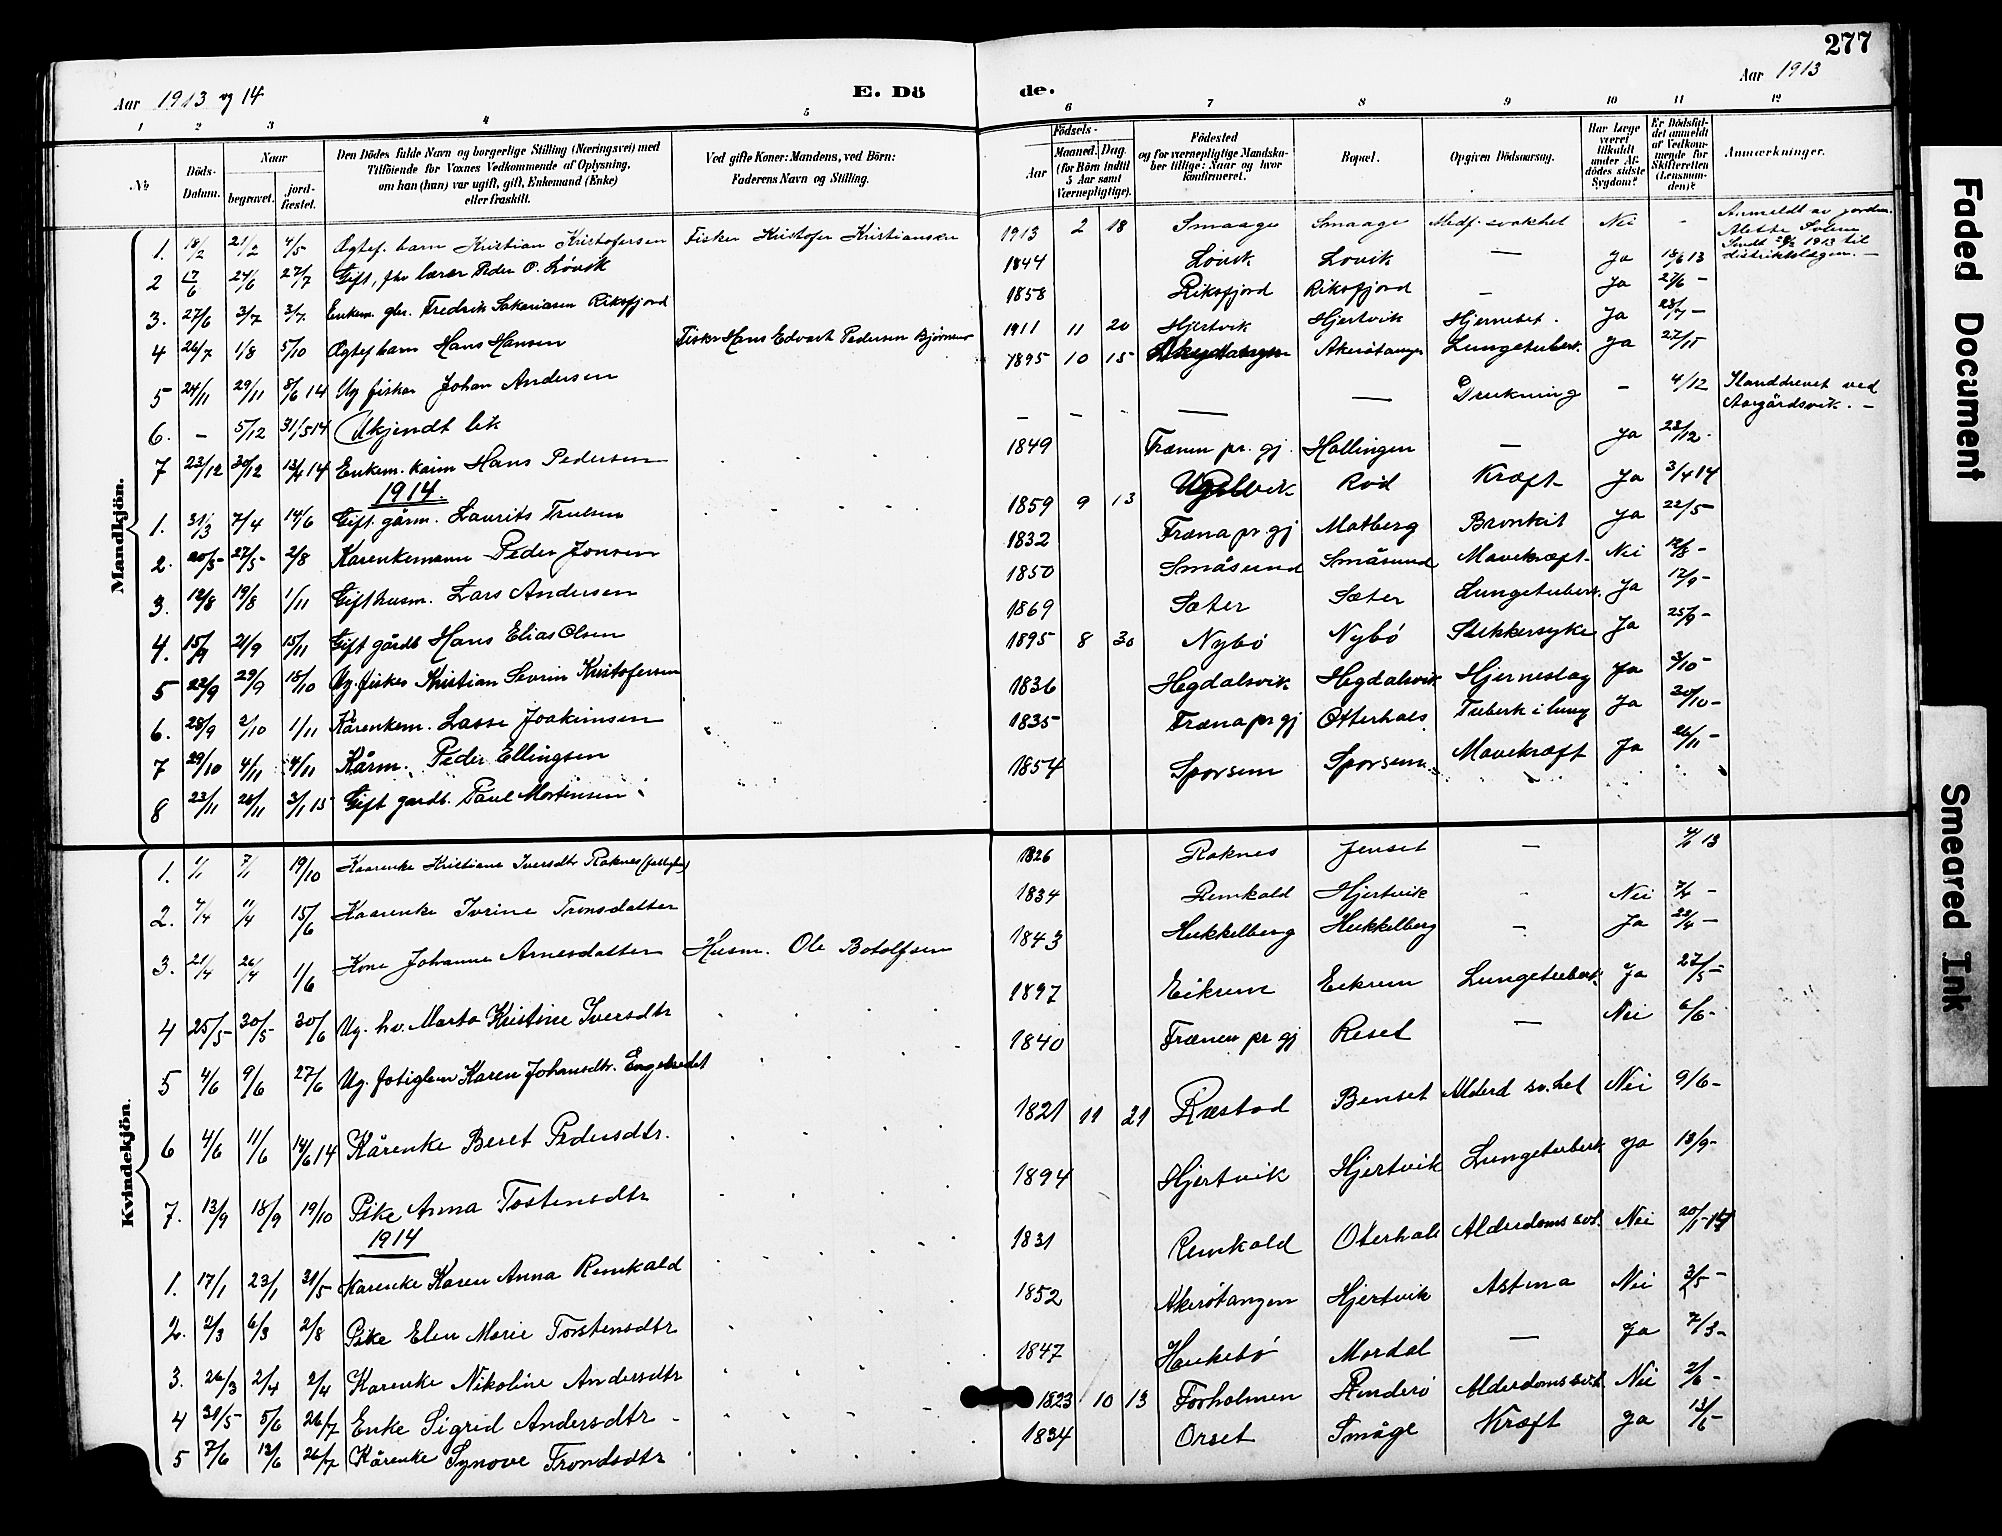 277
Aar 1913 og 14
E. Dö
de.
Aar 1913
1 2 3 4 5 6 7 8 9 10 11 12
No
Döds-Datum.
Naar
begravet.
jord-fæstet.
Den Dödes fulde Navn og borgerlige Stilling (Næringsvei) med
Tilföiende for Voxnes Vedkommende af Oplysning,
om han (hun) var ugift, gift, Enkemand (Enke)
eller fraskilt.
Ved gifte Koner: Mandens, ved Börn:
Faderens Navn og Stilling.
Födsels-
Aar
Maaned. Dag
(for Börn indtil
5 Aar samt
Værnepligtige).
Födested
og for værnepligtige Mandska-
ber tillige: Naar og hvor
konfirmeret.
Bopæl.
Opgiven Dödsaarsag.
Har Læge
været
tilkaldt
under Af-
dödes sidste
Sygdom?
Er Dödsfal-
det anmeldt
af Vedkom-
mende for
Skifteretten
(Lensman-
den)?
Anmærkninger.
Mandkjön.
1. 18/2 21/2 4/5 Ægtef. barn Kristian Kristofersen Fisker Kristofer Kristiansen 1913 2 18 Smaage Smaage Medf. svakhet Nei - Anmeldt av jordm. Mette Solem Sendt 28/2 1913 til distriktslægen. -
2 17/6 24/6 27/7 Gift, fhv lærer Peder O. Lövik 1844 Lövik Lövik - Ja 18/6 13
3. 27/6 3/7 3/7 Enkem. gbr. Fredrik Sakariasen Riksfjord 1858 Riksfjord Riksfjord - Ja 27/6 -
4 26/7 1/8 5/10 Ægtef barn Hans Hansen Fisker Hans Edvart Pedersen Bjørnerem 1911 11 20 Hjertvik Hjertvik Hjernebet. Ja 28/7 -
5 24/11 29/11 8/6 14 Ug fisker Johan Andersen 1895 10 15 Akerötangen Lungetuberk. Ja 27/11
6. - 5/12 31/5 14 Ukjendt lik - - - - - Drukning - 4/12 Ilanddrevet ved Aargårdsvik. -
7 23/12 30/12 13/4 14 Enkem. kaarm Hans Pedersen 1849 Frænen pr. gj. Hollingen - Ja 23/12.
1914.
1. 31/3 7/4 14/6 Gift. gårm. Laurits Trulsen 1859 9 13 Ugelvik Röd Kræft Ja 3/4 14
2. 20/5 27/5 2/8 Kårenkemann Peder Jonsen 1832 Fræna pr gj Malberg Bronkit Ja 22/5 -
3. 12/8 19/8 1/11 Gift husm. Lars Andersen 1850 Småsund Småsund Mavekræft Nei 19/8 -
4. 15/9 21/9 15/11 Gift gårdb Hans Elias Olsen 1869 Sæter Sæter Lungetuberk. Ja 17/9 -
5 23/9 29/9 18/10 Ug. fisker Kristian Severin Kristofersen 1895 8 30 Nybö Nybö Sukkersyke Ja 25/9 -
6. 28/9 2/10 1/11 Kårenkem. Lasse Joakimsen 1836 Hegdalsvik Hegdalsvik Hjerneslag Ja 3/10 -
7 29/10 4/11 4/11 Kårm. Peder Ellingsen 1835 Fræna pr gj Otterhals Tuberk i lung Ja 30/10 -
8 23/11 28/11 3/1 15 Gift gardb. Paul Mortensen 1854 Sporsem Sporsem Mavekræft Ja 26/11 -
Kvindekjön.
1. 1/1 7/1 19/10 Kaarenke Kristiane Iversdtr Raknes (fattigl) 1826 Raknes Jenset - 4/1 13
2. 4/4 11/4 15/6 Kaarenke Ivrine Tronsdatter 1834 Remkald Hjertvik - Nei 7/4 -
3. 21/4 26/4 1/6 Kone Johanne Arnesdatter Husm. Ole Botolfsen 1843 Hukkelberg Hukkelberg - Ja 22/4 -
4 25/5 30/5 30/6 Ug. hv. Marta Kristine Iversdtr 1897 Eikrem Eikrem Lungetuberk. Ja 27/5 -
5 4/6 9/6 27/6 Ug. fatiglem Karen Johansdtr. Engelsedet 1840 Frænen pr gj Reset - Nei 6/6 -
6 4/6 11/6 14/6 14 Kårenke Beret Pedersdtr. 1821 11 21 Ræstad Benset Alderd sv.het Nei 9/6 -
7. 13/9 18/9 19/10 Pike Anna Tostensdtr 1894 Hjertvik Hjertvik Lungetuberk. Ja 13/9 -
1914
1. 17/1 23/1 31/5 Kårenke Karen Anna Remkald 1831 Remkald Oterhals Alderdoms svk. Nei 20/1 - 14
2. 2/3 6/3 2/8 Pike Elen Marie Torstensdtr 1852 Akerötangen Hjertvik Astma Nei 3/5 -
3. 26/3 2/4 2/4 Kårenke Nikoline Andersdtr 1847 Haukebö Mordal - Ja 7/3 -
4 31/5 5/6 26/7 Enke Sigrid Andersdtr - 1823 10 13 Forholmen Rinderö Alderdoms svk. Nei 2/6 -
5 7/6 12/6 26/7 Kårenke Synöve Trondsdtr 1834 Orset Småge Kræft Ja 13/6 -
Faded Document
Smeared Ink